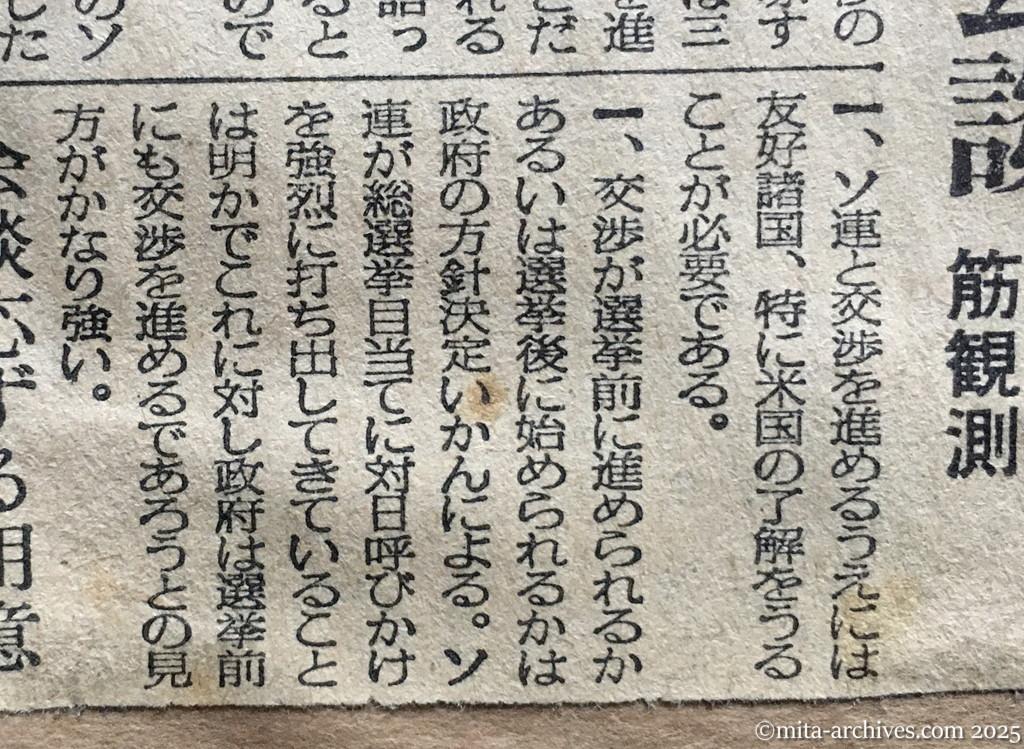 筋観測
一、ソ連と交渉を進めるうえには
友好諸国、特に米国の了解をうる
ことが必要である。
一、交渉が選挙前に進められるか
あるいは選挙後に始められるかは
政府の方針決定いかんによる。ソ
連が総選挙目当てに対日呼びかけ
を強烈に打ち出してきていること
は明かでこれに対し政府は選挙前
にも交渉を進めるであろうとの見
方がかなり強い。
会談応ずる用意
©mita-archives.com 2025